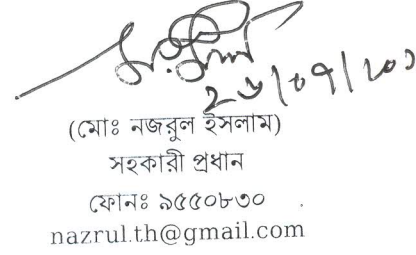 (মোঃ নজরুল ইসলাম)
সহকারী প্রধান
ফোনঃ ৯৫৫০৮৩০
nazrul.th@gmail.com